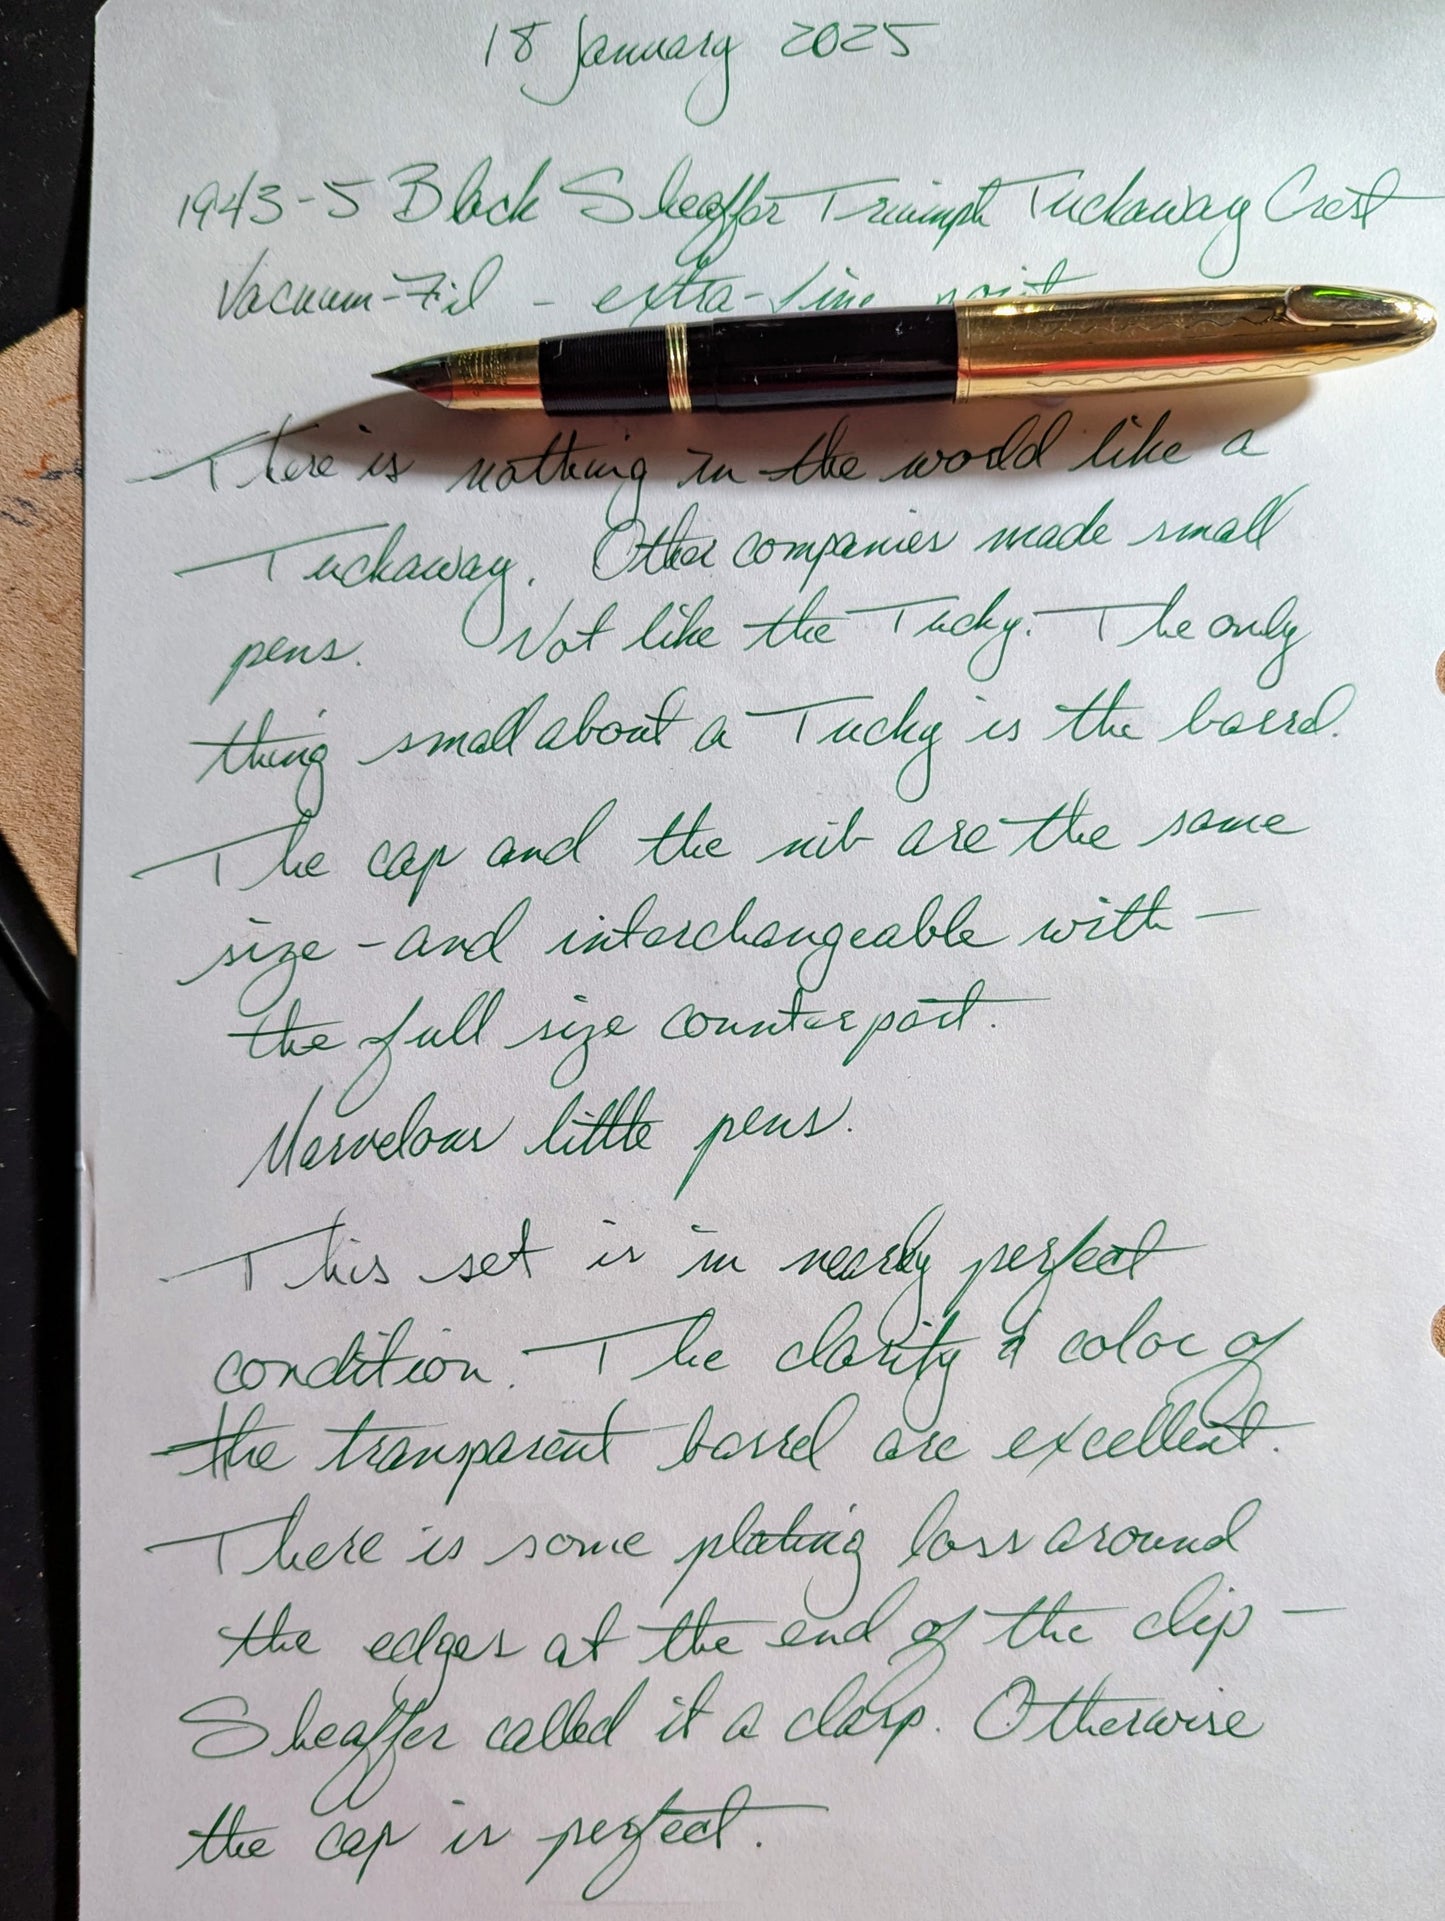 18 January 2025
1943-5 Black Sheaffer Triumph Tuckaway Crest
Vacuum-Fil - extra-fine point
There is nothing in the world like a
Tuckaway. Other companies made small
pens. Not like the Tucky. The only
thing small about a Tucky is the barrel.
The cap and the nib are the same
size - and interchangeable with -
the full size counterpart.
Marvelous little pens.
This set is in nearly perfect
condition. The clarity & color of
the transparent barrel are excellent.
There is some plating loss around
the edges at the end of the clip -
Sheaffer called it a clasp. Otherwise
the cap is perfect.